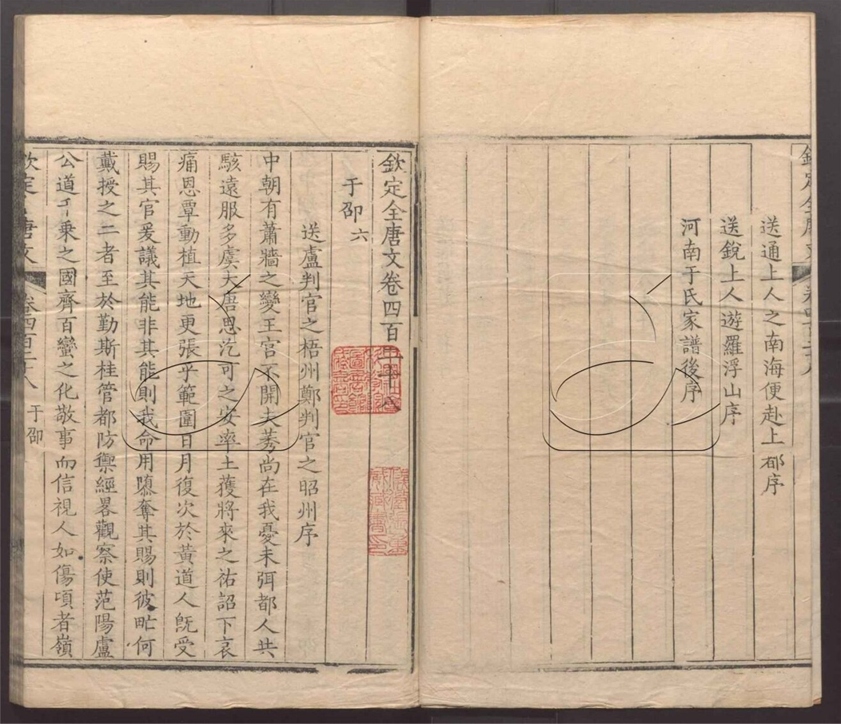 欽定全唐文 卷四百二十八
送通上人之南海便赴上都序
送銳上人遊羅浮山序
河南于氏家譜後序
欽定全唐文卷四百二十八
于卲六
送盧判官之梧州鄭判官之昭州序
中朝有蕭牆之變王官不開夫莠尚在我憂未弭都人共
駭遠服多虞大唐思汔可之安率土獲將來之祐詔下哀
痛恩覃動植天地更張乎範圍日月復次於黃道人旣受
賜其官爰議其能非其能則我命用隳奪其賜則彼甿何
戴授之二者至於勤斯桂管都防禦經畧觀察使范陽盧
公道千乘之國齊百蠻之化敬事而信視人如傷頃者嶺
欽定全唐文 卷四百二十八 于卲